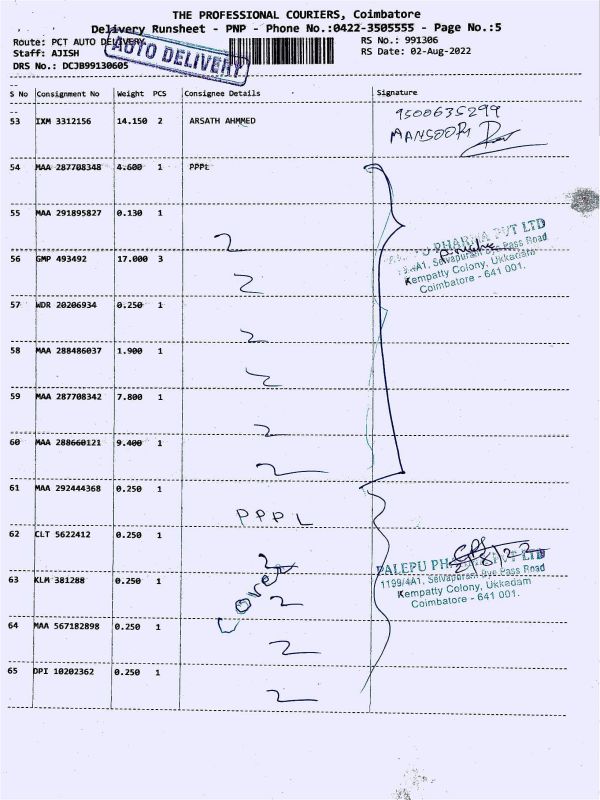 THE PROFESSIONAL COURIERS, Coimbatore
Delivery Runsheet - PNP - Phone No.:0422-3505555 - Page No.:5
Route: PCT AUTO DELIVERY
AUTO DELIVERY
RS No.: 991306
Staff: AJISH
RS Date: 02-Aug-2022
DRS No.: DCJB99130605
S No Consignment No Weight PCS Consignee Details Signature
53 IXM 3312156 14.150 2 ARSATH AHMMED
9500635299
MANSOOR
54 MAA 287708348 4.600 1 PPPL
55 MAA 291895827 0.130 1
PHARMA PVT LTD
Selvapuram Bye Pass Road
Kempatty Colony, Ukkadam
Coimbatore - 641 001.
56 GMP 493492 17.000 3
57 WDR 20206934 0.250 1
58 MAA 288486037 1.900 1
59 MAA 287708342 7.800 1
60 MAA 288660121 9.400 1
61 MAA 292444368 0.250 1
PPPL
62 CLT 5622412 0.250 1
2/8/22
PALEPU PHARMA PVT LTD
1199/4A1, Selvapuram Bye Pass Road
Kempatty Colony, Ukkadam
Coimbatore - 641 001.
63 KLM 381288 0.250 1
Cover
64 MAA 567182898 0.250 1
65 DPI 10202362 0.250 1